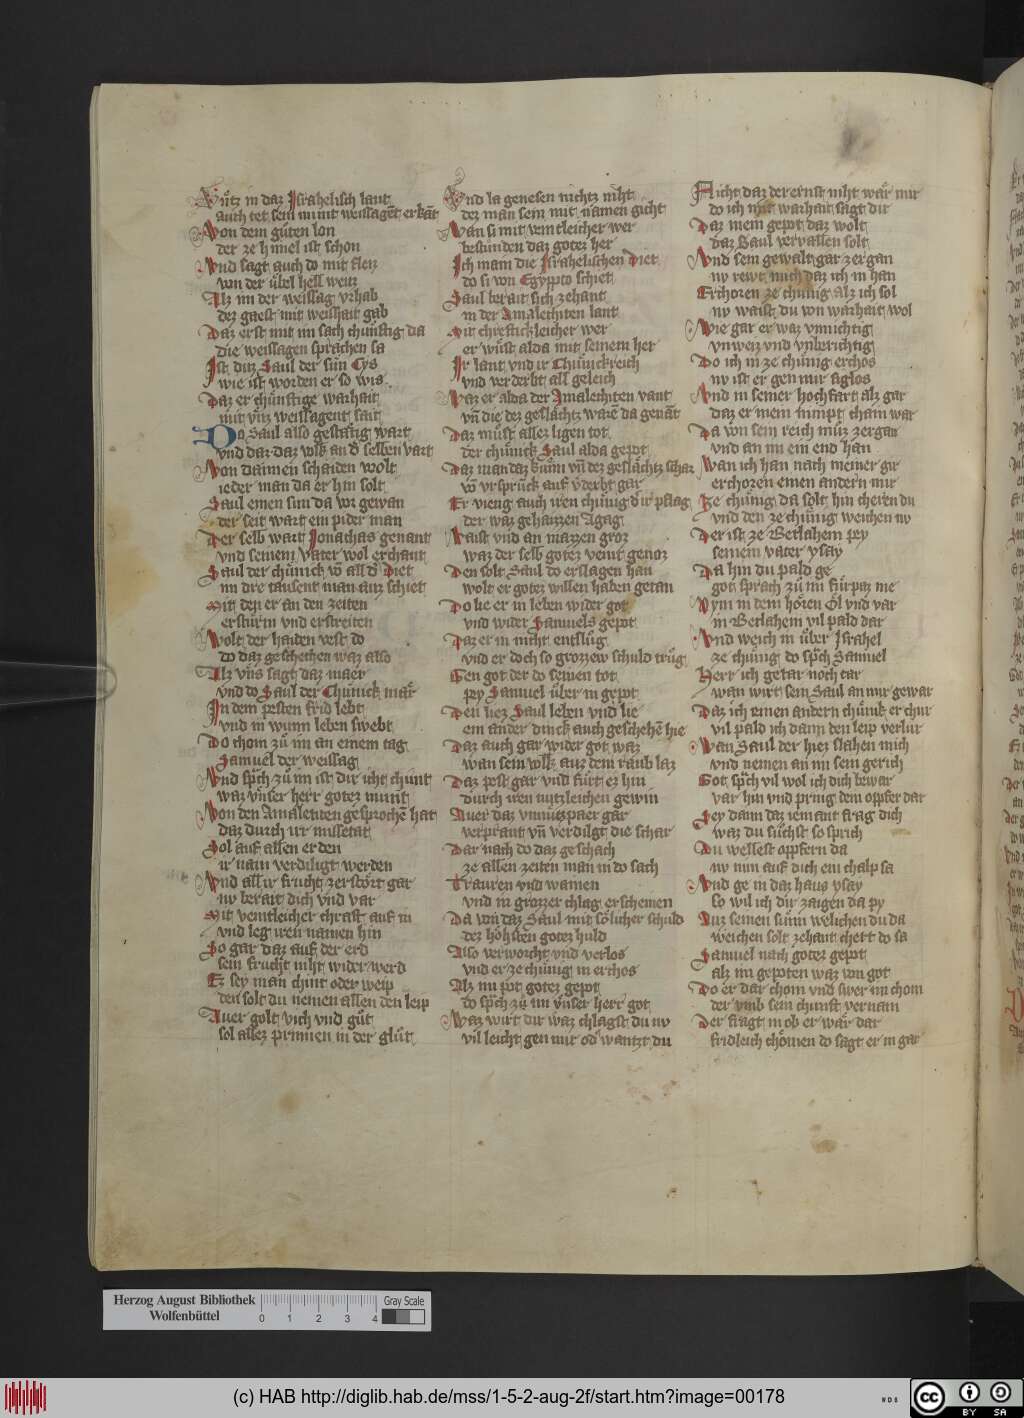 Vntz in daz Israhelisch lant
auch tet sein munt weissagēt erkāt
Von dem gůten lon
der ze himel ist schon
Vnd sagt auch do mit fleiz
von der ůbel hell weitz
Alz im der weissag vrhab
dez gaest mit weishait gab
Daz erst mit im sach chunftig da
die weissagen sprachen sa
Ist ditz Saul der sůn Cys
wie ist worden er so wis
Daz er chůnftige warhait
mit vnz weissagent sait
Do Saul also gestātig wart
vnd daz daz volk an d̄ selben vart
Von dannen schaiden wolt
ieder man da er hin solt
Saul einen sun da vor gewan
der seit wart ein pider man
Der selb wart Jonathas genant
vnd seinem vater wol erchant
Saul der chůnick vō all d̄ Diet
im dre tausent man auz schiet
Mit den er an den zeiten
ersturm vnd erstreiten
Wolt der haiden vest do
do daz geschehen waz also
Alz vns sagt daz maer
vnd do Saul der Chunick mār
In dem pesten frid lebt
vnd in wunn leben swebt
Do chom zů im an einem tag
Samuel der weissag
Vnd sp̄ch zů im ist dir icht chunt
waz vnser herr gotez munt
Von den Amalechiten gesprochē hat
daz durch irr missetat
Sol auf allen erden
ir nam verdiligt werden
Vnd all ir frucht zerstört gar
nv berait dich vnd var
Mit veintleicher chraft auf in
vnd leg iren namen hin
So gar daz auf der erd
sein frucht niht wider werd
Ez sey man chint oder weip
den solt du nemen allen den leip
Auer golt vich vnd gůt
sol allez prinnen in der glůt
Vnd la genesen nichtz niht
dez man sein mit namen gicht
Wan si mit veintleicher wer
bestunden daz gotez her
Ich main die Israhelischen Diet
do si von Egypto schiet
Saul berait sich zehant
in der Amalechiten lant
Mit chreftickleicher wer
er wůst alda mit seinem her
Ir lant vnd ir Chůnickreich
vnd verderbt all geleich
Waz er alda der Amalechiten vant
vn̄ die dez geslächtz warē da genāt
Daz můst allez ligen tot
der chůnick Saul alda gepot
Daz man daz kunn vn̄ dez geslächtz schar
vō vrsprůck auf v̄derbt gar
Er vieng auch iren chunig d̄ ir pflag
der waz gehaizzen Agag
Vaist vnd an mazzen groz
waz der selb gotez veint genoz
Den solt Saul do erslagen han
wolt er gotez willen haben getan
Do lie er in leben wider got
vnd wider Samuels gepot
Daz er in nicht entslůg
vnd er doch so grozzew schuld trůg
Gen got der do seinen tot
pey Samuel über in gepot
Den liez Saul leben vnd lie
ein ander dinck auch geschehē hie
Daz auch gar wider got waz
wan sein volk auz dem raub laz
Daz pest gar vnd fürt ez hin
durch iren nutzleichen gewin
Auer daz vnnutzpaer gar
verprant vn̄ verdilgt die schar
Dar nach do daz geschach
ze allen zeiten man in do sach
Trauren vnd wainen
vnd in grozzer chlag erscheinen
Da von daz Saul mit sölicher schuld
dez höhsten gotez huld
Also verworcht vnd verlos
vnd er ze chunig in erchos
Alz im pot gotez gepot
do sp̄ch zů im vnser herr got
Waz wirt dir waz chlagst du nv
vil leicht gen mir od wantzt du
Nicht daz der ernst niht wär mir
do ich mit warhait sagt dir
Daz mein gepot daz wolt
daz Saul vervallen solt
Vnd sein gewalt gar zergan
nv rewt mich daz ich in han
Erchozen ze chunig alz ich sol
nv waist du von warhait wol
Wie gar er waz vnnichtig
vnweiz vnd vnberichtig
Do ich in ze chunig erchos
nv ist er gen mir siglos
Vnd in seiner hochfart alz gar
daz er mein nimpt chain war
Da von sein reich můz zergan
vnd an im ein end han
Wan ich han nach meiner gir
erchozen einen andern mir
Ze chunig da solt hin cheren du
vnd den ze chunig weichen nv
Der ist ze Betlahem pey
seinem vater ysay
Da hin du pald ge
got sprach zů im fürpaz me
Nym in dem hören Öl vnd var
in Betlahem vil pald dar
Vnd weich in über Israhel
ze chunig do sp̄ch Samuel
Herr ich getar noch tar
wan wirt sein Saul an mir gewar
Daz ich einen andern chůnik er chur
vil pald ich dann den leip verlur
Wan Saul der hiez slahen mich
vnd nemen an im sein gerich
Got sp̄ch vil wol ich dich bewar
var hin vnd pring dem oppfer dar
Sey dann daz iemant frag dich
waz du sůchst so sprich
Du wellest oppfern da
nv nim auf dich ein chalp sa
Vnd ge in daz haus ysay
so wil ich dir zaigen da py
Auz seinen sůnn welichen du da
weichen solt zehant chert do sa
Samuel nach gotez gepot
alz im gepoten waz von got
Do er dar chom vnd swer im chom
der vmb sein chunft vernam
Der fragt in ob er wär dar
fridleich chömen do sagt er in gar
Herzog August Bibliothek
Wolfenbüttel
0 1 2 3 4
Gray Scale
(c) HAB http://diglib.hab.de/mss/1-5-2-aug-2f/start.htm?image=00178
WDB
cc BY SA